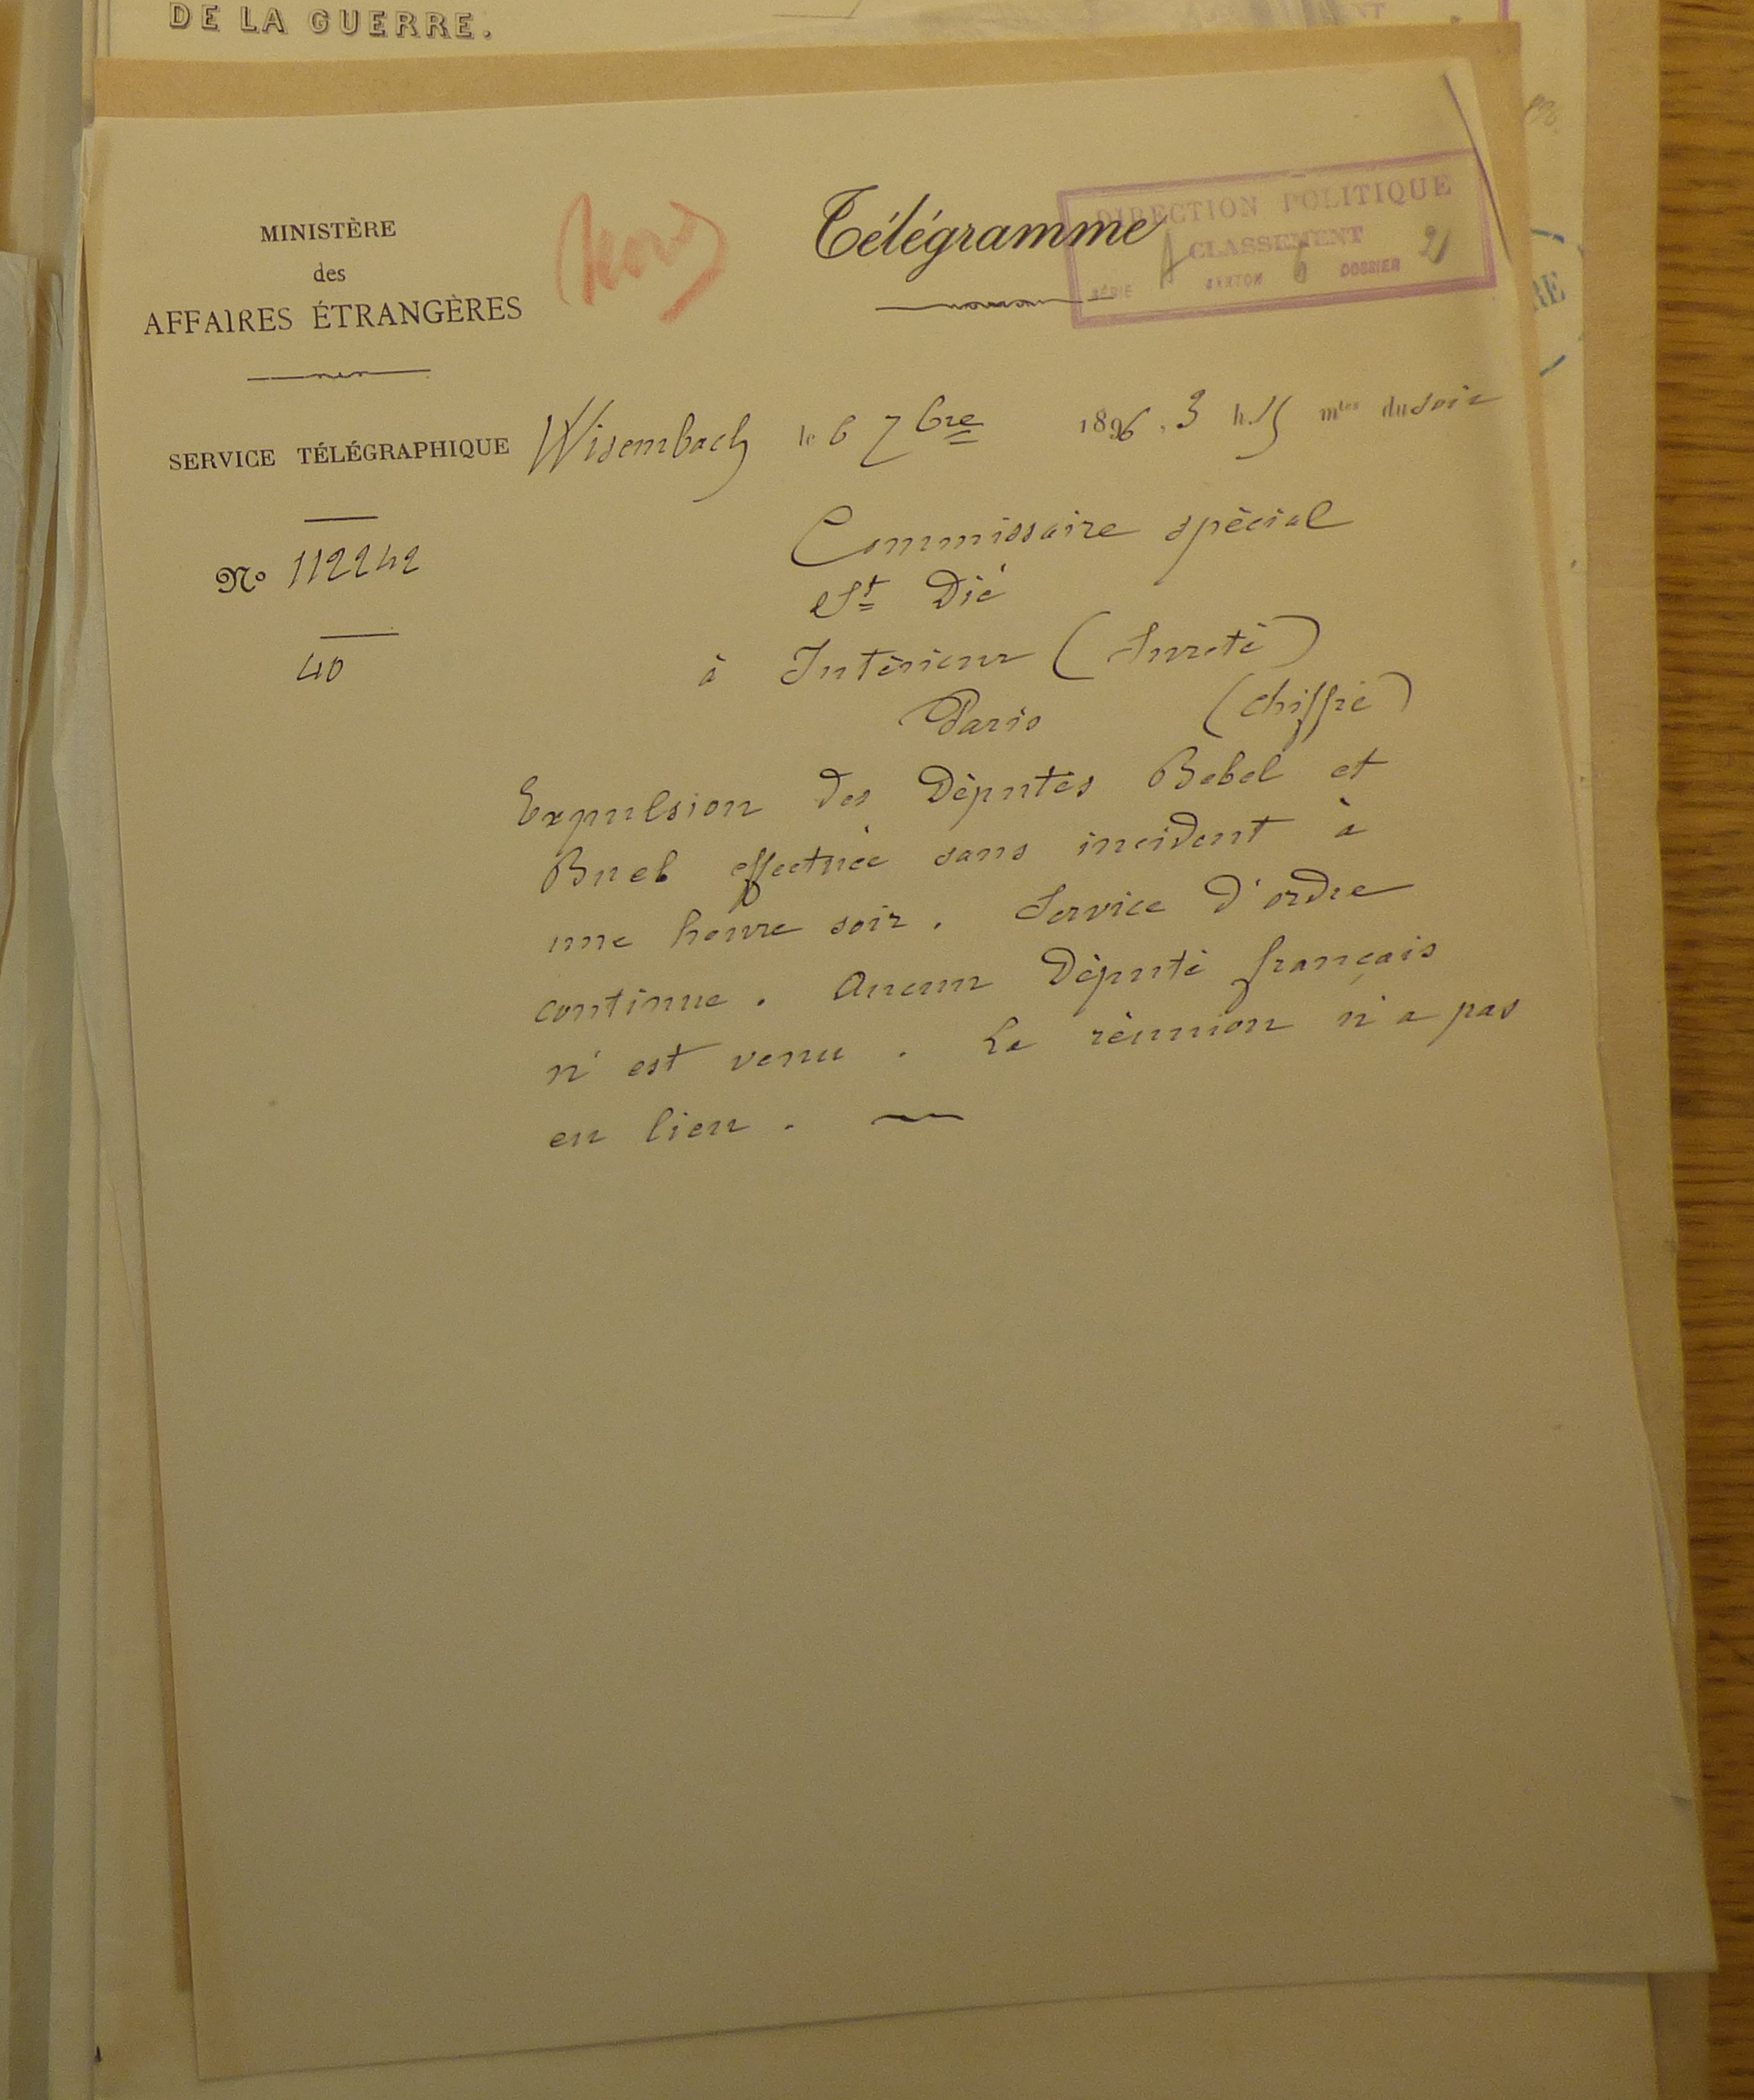 DE LA GUERRE.
MINISTÈRE
des
AFFAIRES ÉTRANGÈRES
SERVICE TÉLÉGRAPHIQUE
Nº 112242
40
Télégramme
DIRECTION POLITIQUE
CLASSEMENT
SÉRIE A CARTON 6 DOSSIER 21
Wisembach le 6 7bre 1896, 3 h. 15 mtes du soir
Commissaire spécial
St Dié
à Intérieur (Sureté)
Paris (chiffré)
Expulsion des Députés Bebel et
Bueb effectuée sans incident à
une heure soir. Service d'ordre
continue. Aucun Député français
n'est venu. La réunion n'a pas
eu lieu.
RE